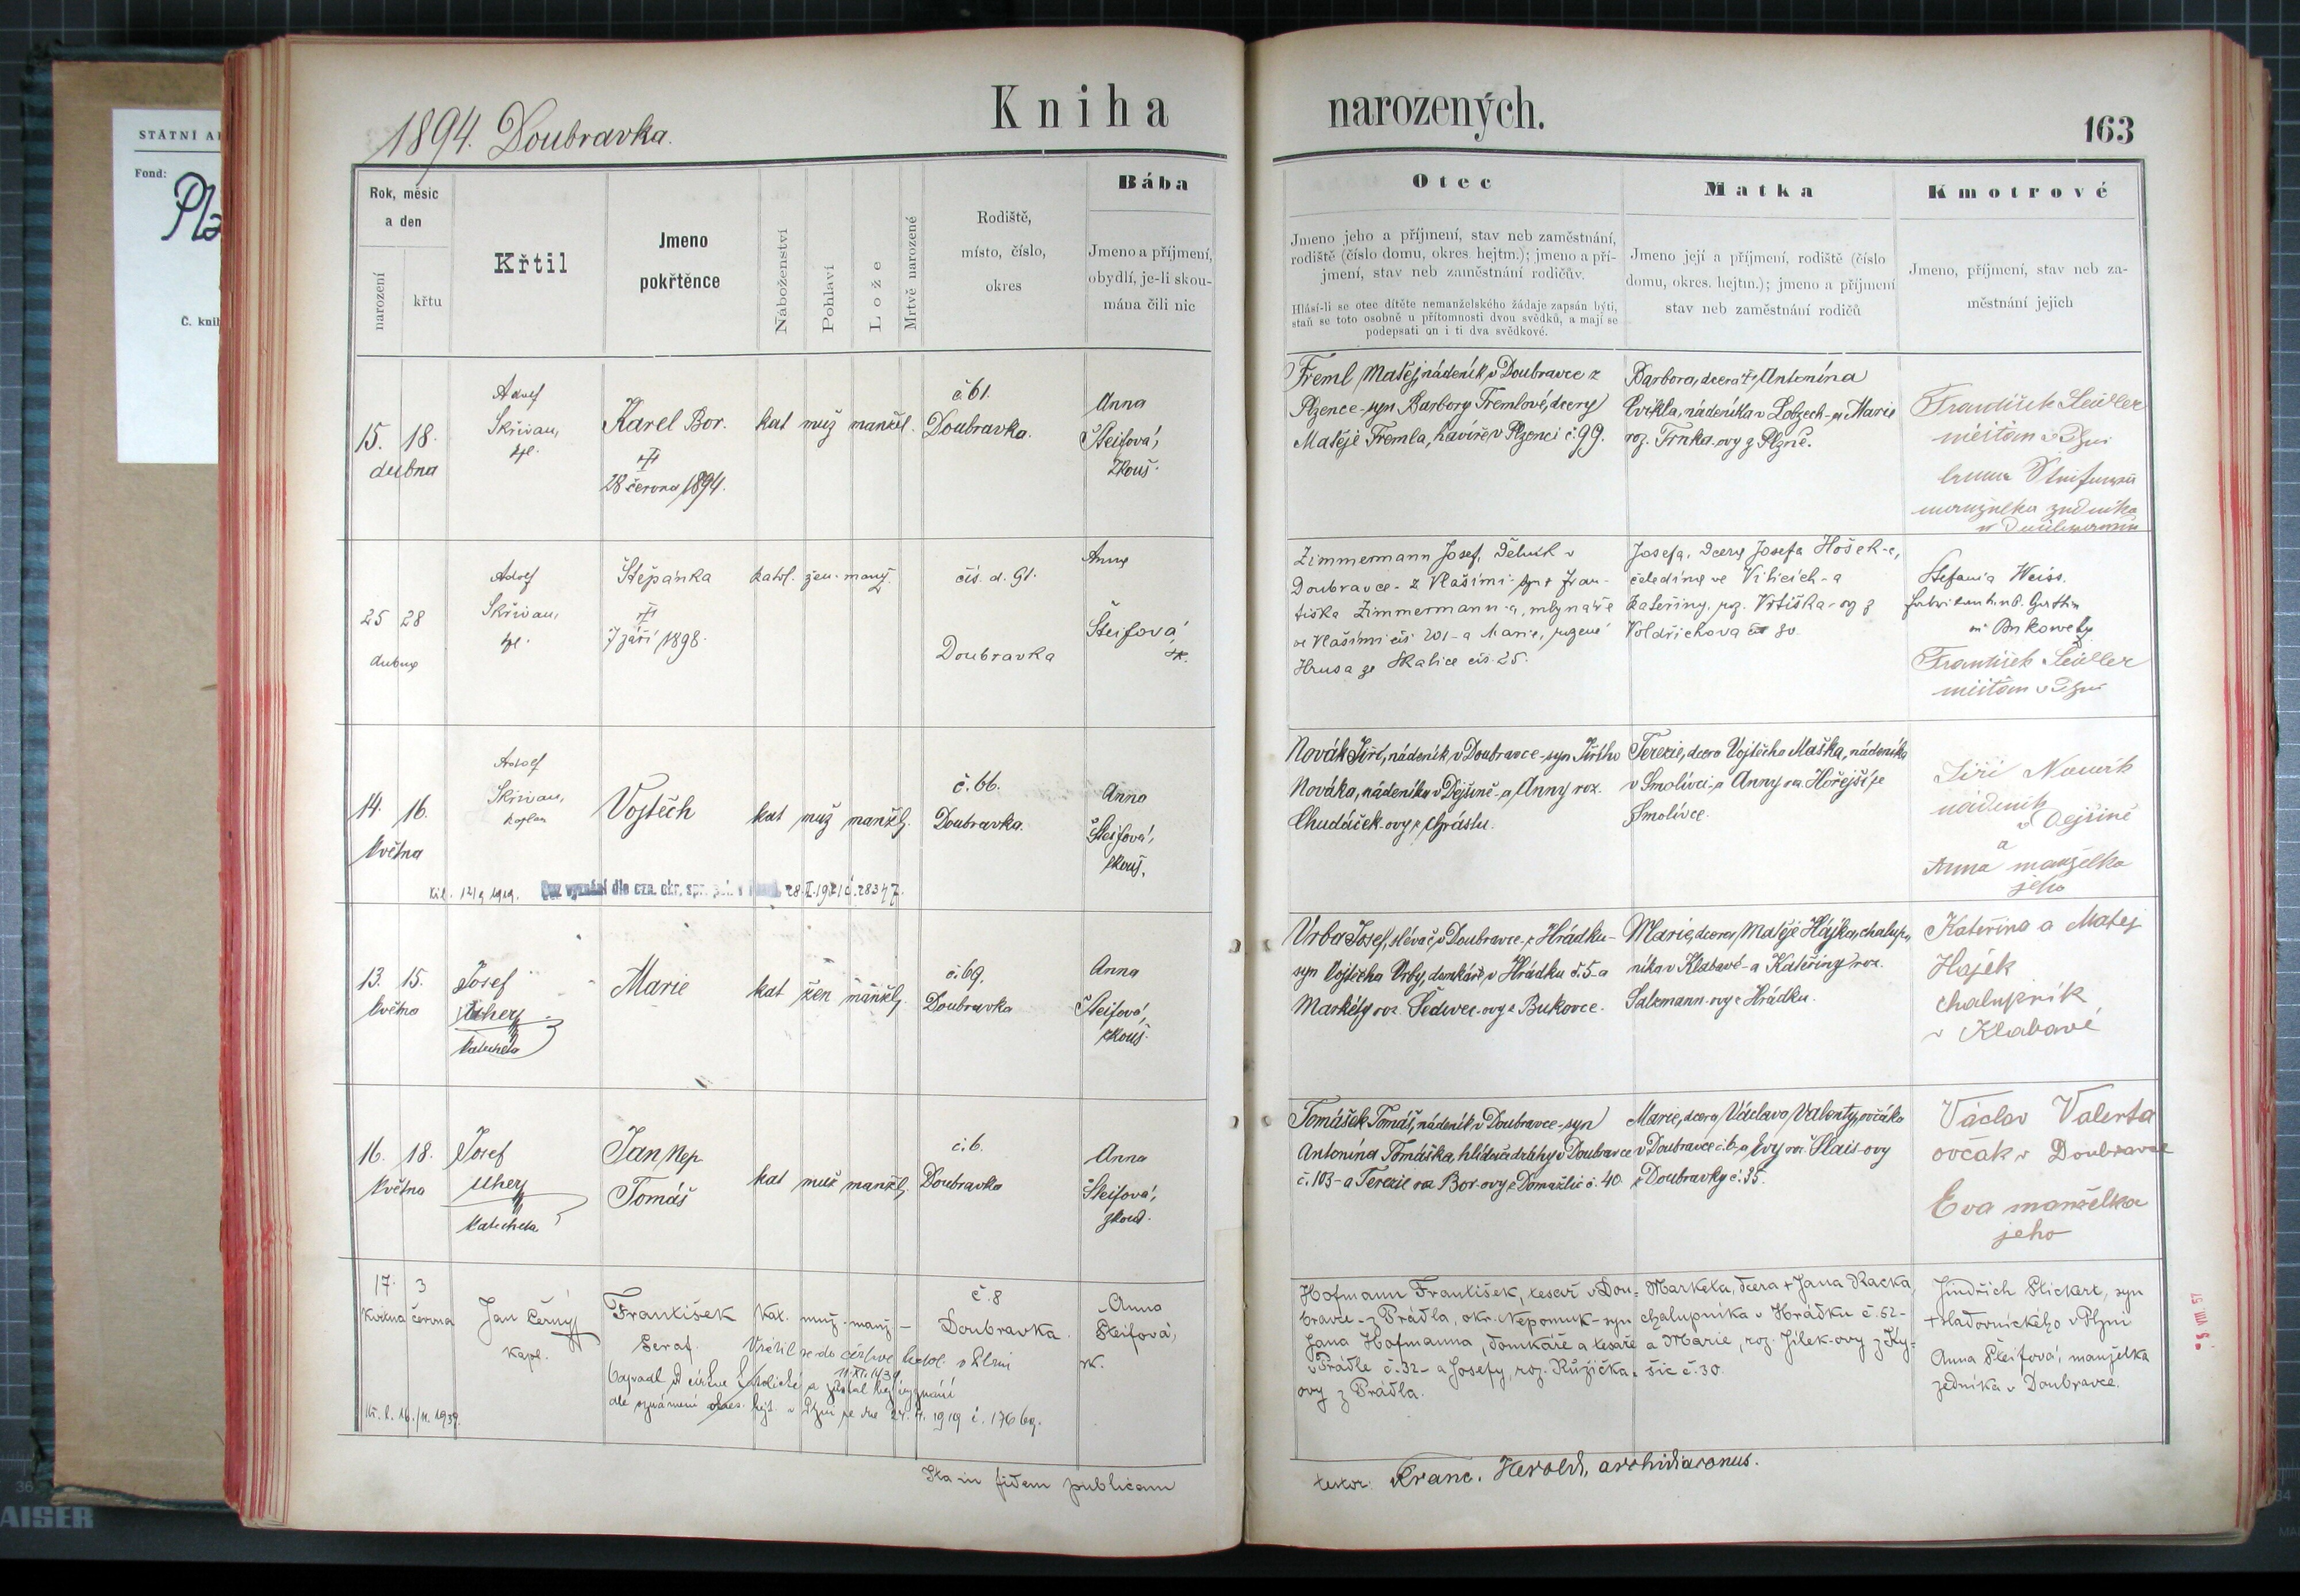 STÁTNÍ A
Fond:
Č. knih
1894. Doubravka.
Kniha narozených.
163
Rok, měsíc a den
narození
křtu
Křtil
Jmeno pokřtěnce
Náboženství
Pohlaví
Lože
Mrtvě narozené
Rodiště,
místo, číslo,
okres
Bába
Jmeno a příjmení,
obydlí, je-li skou-
mána čili nic
Otec
Jmeno jeho a příjmení, stav neb zaměstnání,
rodiště (číslo domu, okres. hejtm.); jmeno a pří-
jmení, stav neb zaměstnání rodičův.
Hlásí-li se otec dítěte nemanželského žádaje zapsán býti,
staň se toto osobně u přítomnosti dvou svědků, a mají se
podepsati on i ti dva svědkové.
Matka
Jmeno její a příjmení, rodiště (číslo
domu, okres. hejtm.); jmeno a příjmení
stav neb zaměstnání rodičů
Kmotrové
Jmeno, příjmení, stav neb za-
městnání jejich
15. 18.
dubna
Adolf
Skřivan,
kpl.
Karel Bor.
28 června 1894.
kat muž manžel.
č. 61.
Doubravka.
Anna
Šteifová,
zkouš.
Freml Matěj, nádeník v Doubravce z
Plzence - syn Barbory Fremlové, dcery
Matěje Fremla, havíře v Plzenci č. 99.
Barbora, dcera Antonína
Cvikla, nádeníka v Lobzech - a Marie
roz. Trnka-ovy z Plzně.
František Seidler
25 28
dubna
Adolf
Skřivan,
kpl.
Štěpánka
7 září 1898.
katol. žen. manž.
čís. d. 91.
Doubravka
Anna
Šteifová,
zk.
Zimmermann Josef, dělník v
Doubravce - z Vlašimi - syn Fran-
tiška Zimmermann-a, mlynáře
ve Vlašimi čís 201 - a Marie, rozené
Hrusa ze Skalice čís. 25.
Josefa, dcera Josefa Hošek-a,
čeledína ve Vilicích - a
Kateřiny, roz. Vrtiška-ovy z
Voldřichova 30.
Stefania Weiss.
František Seidler
14. 16.
května
Adolf
Skřivan,
kaplan
Vojtěch
kat muž manžel.
č. 66.
Doubravka.
Anna
Šteifová,
zkouš.
Novák Jiří, nádeník v Doubravce - syn Jiřího
Nováka, nádeníka v Dejšině - a Anny roz.
Chudáček-ovy z Chrástu.
Terezie, dcera Vojtěcha Maška, nádeníka
v Smolívci - a Anny roz. Hořejší ze
Smolívce.
Jiří Novák
nádeník
v Dejšině
a
Anna manželka
jeho
13. 15.
května
Josef
Uherz
katecheta
Marie
kat žen manžel.
č. 69.
Doubravka
Anna
Šteifová,
zkouš.
Vrba Josef, slévač v Doubravce - z Hrádku -
syn Vojtěcha Vrby, domkáře v Hrádku č. 5 - a
Markéty roz. Šedivec-ovy z Bukovce.
Marie, dcera Matěje Hájka, chalup-
níka v Klabavě - a Kateřiny roz.
Salzmann-ovy z Hrádku.
Kateřina a Matej
Hajek
chalupník
v Klabavě
16. 18.
května
Josef
Uherz
katecheta
Jan Nep.
Tomáš
kat muž manžel.
č. 6.
Doubravka
Anna
Šteifová,
zkouš.
Tomášek Tomáš, nádeník v Doubravce - syn
Antonína Tomáška, hlídače dráhy v Doubravce
č. 103 - a Terezie roz. Bor-ovy z Domažlic č. 40.
Marie, dcera Václava Valenty, ovčáka
v Doubravce č. 6 - a Evy roz. Slais-ovy
z Doubravky č. 35.
Václav Valenta
ovčák v Doubravce
Eva manželka
jeho
17. 3
května června
Jan Černý
kapl.
František
Seraf.
kat. muž. manž. –
č. 8
Doubravka.
Anna
Šteifová,
zk.
Vrátil se do církve katol. v Plzni
Odpadl od církve katolické a zůstal bez vyznání
dle oznámení okres. hejt. v Plzni ze dne
Hofmann František, tesař v Dou-
bravce - z Prádla, okr. Nepomuk - syn
Jana Hofmanna, domkáře a tesaře
v Prádle č. 32 - a Josefy, roz. Růžička-
ovy z Prádla.
Markéta, dcera + Jana Racka,
chalupníka v Hrádku č. 52 -
a Marie, roz. Jílek-ovy z Ky-
šic č. 30.
Jindřich Stickert, syn
+ sladovnického v Plzni
Anna Šteifová, manželka
zedníka v Doubravce.
Ita in fidem publicam
testor. Franc. Herold, archidiaconus.